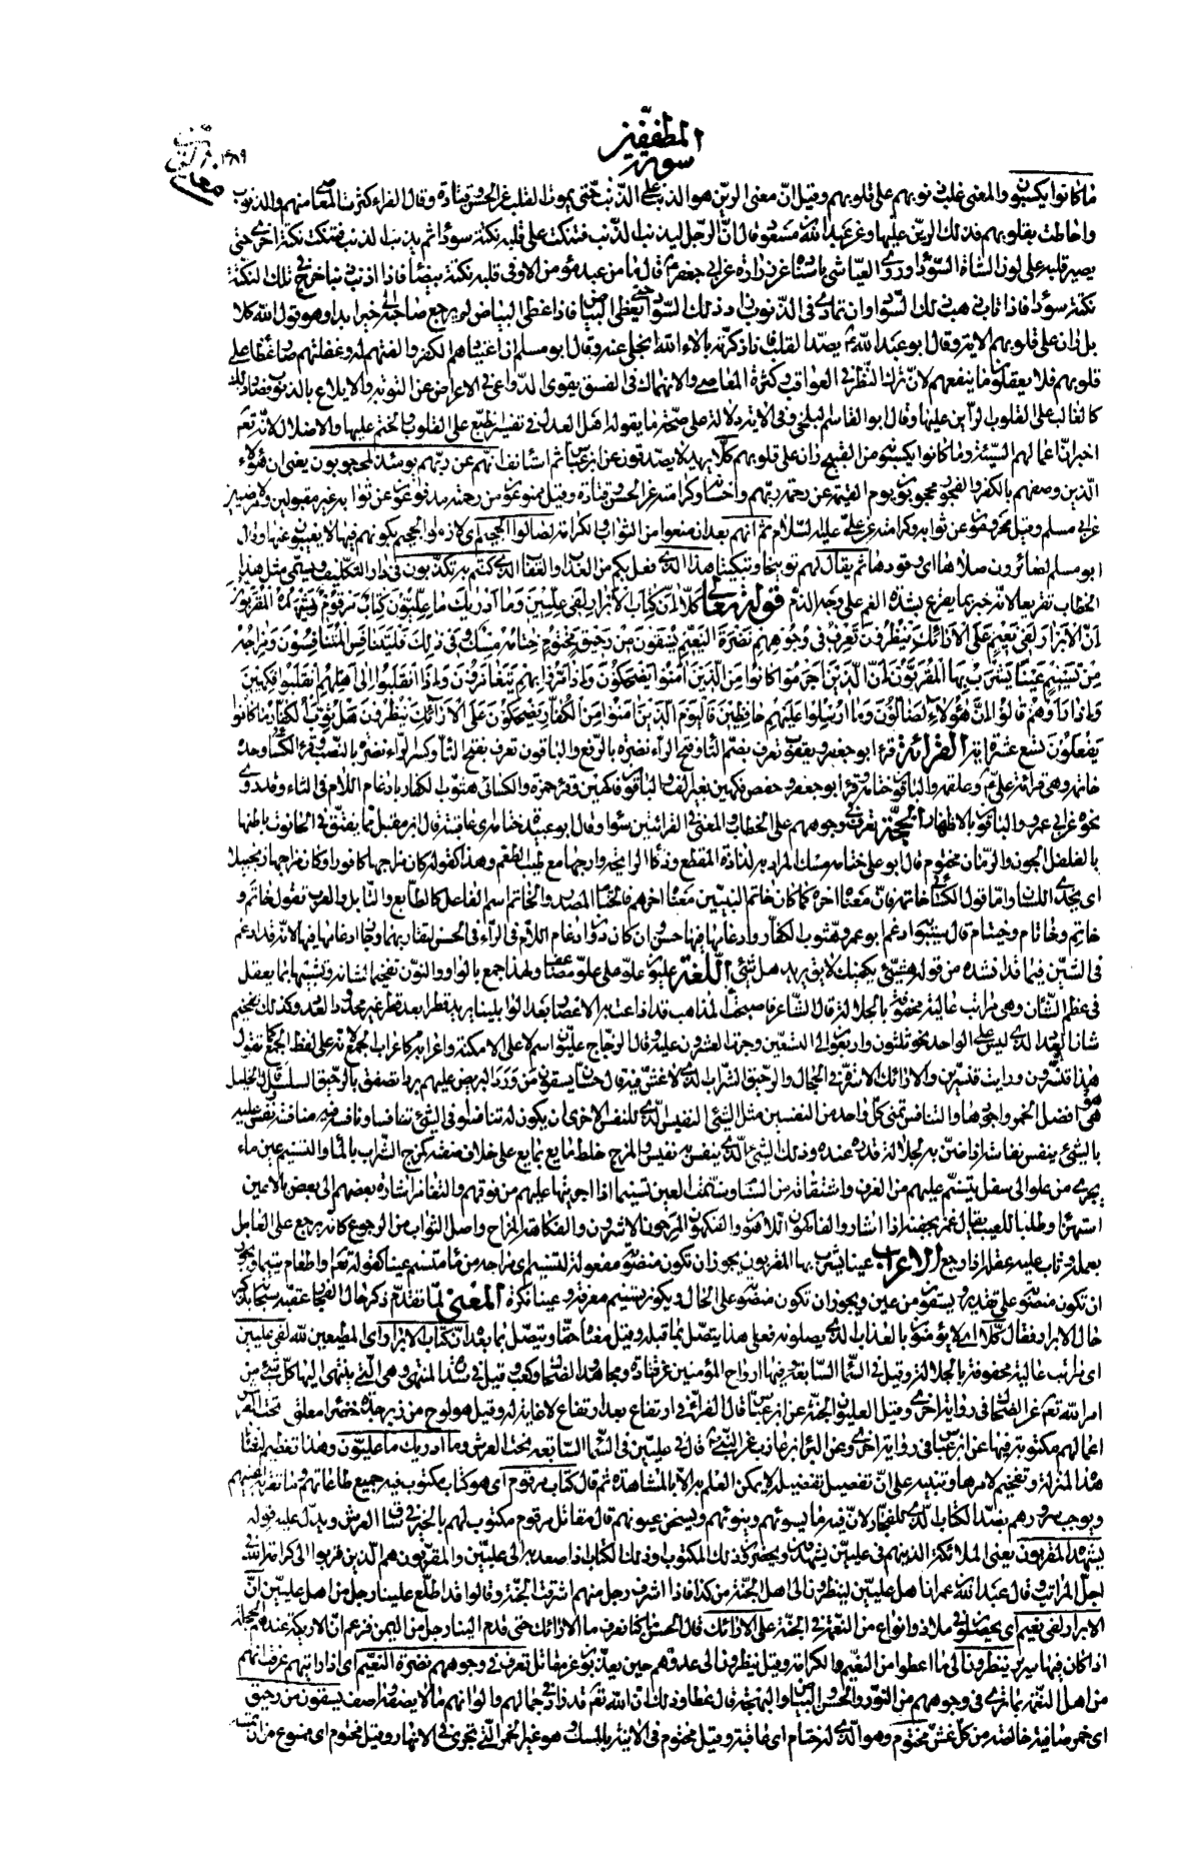 المطففين
سورة
ما كانوا يكسبون والمعنى غلب ذنوبهم على قلوبهم وقيل ان معنى الرين هو الذنب على الذنب حتى يموت القلب عن الحسن وقتادة وقال الفراء كثرت المعاصي منهم والذنوب
واحاطت بقلوبهم فذلك الرين عليها وعن عبد الله بن مسعود قال ان الرجل ليذنب الذنب فتنكت على قلبه نكتة سوداء ثم يذنب الذنب فتنكت نكتة اخرى حتى
يصير قلبه على لون الشاة السوداء وروى العياشي باسناده عن زرارة عن ابي جعفر ع قال ما من عبد مؤمن الا وفي قلبه نكتة بيضاء فاذا اذنب ذنبا خرج في تلك النكتة
نكتة سوداء فاذا تاب ذهب ذلك السواد وان تمادى في الذنوب زاد ذلك السواد حتى يغطي البياض فاذا غطى البياض لم يرجع صاحبه الى خير ابدا وهو قول الله كلا
بل ران على قلوبهم الاية وقال ابو عبد الله ع يصدأ القلب فاذا ذكرته بالاء الله انجلى عنه وقال ابو مسلم ان اعتيادهم الكفر والفتهم له وغفلتهم صار غطاء على
قلوبهم فلا يعقلون ما ينفعهم لان ترك النظر في العواقب وكثرة المعاصي والانهماك في الفسق يقوي الدواعي في الاعراض عن التوبة والاقلاع بالذنوب فصار ذلك
كالغالب على القلوب الراين عليها وقال ابو القاسم البلخي وفي الاية دلالة على صحة ما يقوله اهل العدل في تفسير الطبع على القلوب والختم عليها والاضلال لانه تعالى
اخبر ان اعمالهم السيئة وما كانوا يكسبونه من القبيح ران على قلوبهم كلا يريد لا يصدقون عن ابن عباس ثم استانف انهم عن ربهم يومئذ لمحجوبون يعني ان هؤلاء
الذين وصفهم بالكفر والفجور محجوبون يوم القيمة عن رحمة ربهم واحسانه وكرامته عن الحسن وقتادة وقيل ممنوعون من رحمته مدفوعون عن ثوابه غير مقبولين ولا مرضيين
عن ابي مسلم وقيل محرومون عن ثوابه وكرامته عن علي عليه السلام ثم انهم بعد ان منعوا من الثواب والكرامة لصالوا الجحيم اي لازموا الجحيم بكونهم فيها لا يغيبون عنها وقال
ابو مسلم لصائرون صلاها اي وقودها ثم يقال لهم توبيخا وتبكيتا هذا الذي فعل بكم من العذاب والعقاب الذي كنتم به تكذبون في دار التكليف ويسمى مثل هذا
الخطاب تقريعا لانه خبر بما يقرع بشدة الغم على وجه الذم قوله تعالى كلا ان كتاب الابرار لفي عليين وما ادريك ما عليون كتاب مرقوم يشهده المقربون
ان الابرار لفي نعيم على الارائك ينظرون تعرف في وجوههم نضرة النعيم يسقون من رحيق مختوم ختامه مسك وفي ذلك فليتنافس المتنافسون ومزاجه
من تسنيم عينا يشرب بها المقربون ان الذين اجرموا كانوا من الذين امنوا يضحكون واذا مروا بهم يتغامزون واذا انقلبوا الى اهلهم انقلبوا فكهين
واذا راوهم قالوا ان هؤلاء لضالون وما ارسلوا عليهم حافظين فاليوم الذين امنوا من الكفار يضحكون على الارائك ينظرون هل ثوب الكفار ما كانوا
يفعلون تسع عشرة اية القرائة قرء ابو جعفر ويعقوب تعرف بضم التاء وفتح الراء نضرة بالرفع والباقون تعرف بفتح التاء وكسر الراء نضرة بالنصب وقرء الكسائي وحده
خاتمه وهي قرائة علي ع وعلقمة والباقون ختامه وقرء ابو جعفر وحفص فكهين بغير الف والباقون فاكهين وقرء حمزة والكسائي هثوب الكفار بادغام اللام في الثاء وقد روي
نحوه عن ابي عمرو والباقون بالاظهار الحجة تعرف في وجوههم على الخطاب والمعنى في القرائتين سواء وقال ابو عبيدة ختامه اي عاقبته قال ابن مقبل مما يفتق في الحانوت باطنها
بالفلفل الجون والرمان مختوم قال ابو علي ختامه مسك المراد به لذاذة المقطع وذكاء الرايحة وارجها مع طيب الطعم وهذا كقوله كان مزاجها كافورا وكان مزاجها زنجبيلا
اي يحذي اللسان واما قول الكسائي خاتمه فان معناه اخره كما كان خاتم النبيين معناه اخرهم فالختام المصدر والخاتم اسم الفاعل كالطابع والتابل والعرب تقول خاتم و
خاتم وخاتام وخيتام قال سيبويه ادغم ابو عمرو هثوب الكفار وادغامها فيها حسن وان كان دون ادغام اللام في الراء في الحسن لتقاربهما وجاز ادغامها فيها لانه قد ادغم
في الشين فيما قد انشده من قوله هشيء بكفيك لايق يريد هل شيء اللغة عليون علو على علو مضاعف ولهذا جمع بالواو والنون تفخيما لشانه وتشبيها بما يعقل
في عظم الشان وهي مراتب عالية محفوفة بالجلالة قال الشاعر فاصبحت المذاهب قد اذاعت به الاعصار بعد الوابلينا يريد قطرا بعد قطر غير محدود العدد وكذلك تفخيم
شان العدد الذي ليس على الواحد نحو ثلثون واربعون الى التسعين وجرت العشرون عليه قال الزجاج عليون اسم لاعلى الامكنة واعرابه كاعراب الجمع لانه على لفظ الجمع كما تقول
هذه قنسرون ورايت قنسرين والارائك الاسرة في الحجال والرحيق الشراب الذي لا غش فيه قال حسان يسقون من ورد البريص عليهم بردا تصفق بالرحيق السلسل قال الخليل
هي افضل الخمر واجودها والتنافس تمني كل واحد من النفسين مثل الشيء النفيس الذي للنفس الاخرى ان يكون له تنافسوا في الشيء تنافسا ونافسه فيه منافسة ونفس عليه
بالشيء ينفس نفاسة اذا ضن به لجلالة قدره عنده وذلك الشيء الذي ينفس به نفيس والمزج خلط مايع بمايع على خلاف صفته كمزج الشراب بالماء والتسنيم عين ماء
يجري من علو الى سفل يتسنم عليهم من الغرف واشتقاقه من السنام وسنمت العين تسنيما اذا اجريتها عليهم من فوقهم والتغامز اشارة بعضهم الى بعض بالاعين
استهزاء وطلبا للعيب يقال غمز بجفنه اذا اشار والفاكهون اللاهون والفكهون المرحون الاشرون والفكاهة المزاح واصل الثواب من الرجوع كانه يرجع على العامل
بعمله وثاب عليه عقله اذا رجع الاعراب عينا يشرب بها المقربون يجوز ان تكون منصوبة مفعولة لتسنيم اي مزاجه من ماء متسنم عينا كقوله تعالى او اطعام يتيما ويجوز
ان تكون منصوبة على تقدير ويسقون من عين ويجوز ان تكون منصوبة على الحال ويكون تسنيم معرفة وعينا نكرة المعنى لما تقدم ذكر حال الفجار عقبه سبحانه بذكر
حال الابرار فقال كلا اي لا يؤمنون بالعذاب الذي يصلونه فعلى هذا يتصل بما قبله وقيل معناه حقا ويتصل بما بعده ان كتاب الابرار اي المطيعين لله لفي عليين
اي مراتب عالية محفوفة بالجلالة وقيل في السماء السابعة وفيها ارواح المؤمنين عن قتادة ومجاهد والضحاك وكعب وقيل في سدرة المنتهى وهي التي ينتهي اليها كل شيء من
امر الله تعالى عن الضحاك في رواية اخرى وقيل العليون الجنة عن ابن عباس قال الفراء في ارتفاع بعد ارتفاع لا غاية له وقيل هو لوح من زبرجدة خضراء معلق تحت العرش
اعمالهم مكتوبة فيها عن ابن عباس في رواية اخرى وعن البراء بن عازب عن النبي ص قال في عليين في السماء السابعة تحت العرش وما ادريك ما عليون وهذا تعظيم لشان
هذه المنزلة وتفخيم لامرها وتنبيه على ان تفصيل تفضيله لا يمكن العلم به الا بالمشاهدة ثم قال كتاب مرقوم اي هو كتاب مكتوب فيه جميع طاعاتهم وما تقر به اعينهم
ويوجب سرورهم بضد الكتاب الذي للفجار لان فيه ما يسوئهم وينوئهم ويسخن عيونهم قال مقاتل مرقوم مكتوب لهم بالخير في ساق العرش ويدل عليه قوله
يشهده المقربون يعني الملائكة الذين هم في عليين يشهدون ويحضرون ذلك المكتوب او ذلك الكتاب اذا صعد به الى عليين والمقربون هم الذين قربوا الى كرامة الله في
اجل المراتب وقال عبد الله بن عمر ان اهل عليين لينظرون الى اهل الجنة من كذا فاذا اشرف رجل منهم اشرقت الجنة وقالوا قد اطلع علينا رجل من اهل عليين ان
الابرار لفي نعيم اي يحصلون في ملاذ وانواع من النعمة في الجنة على الارائك قال الحسن كنا لا نعرف ما الارائك حتى قدم الينا رجل من اليمن فزعم ان الاريكة عندهم الحجلة
اذا كان فيها سرير ينظرون الى ما اعطوا من النعيم والكرامة وقيل ينظرون الى عدوهم حين يعذبون عن مقاتل تعرف في وجوههم نضرة النعيم اي اذا رايتهم عرفت انهم
من اهل النعمة بما ترى في وجوههم من النور والحسن والبياض والبهجة قال عطا وذلك ان الله تعالى قد زاد في جمالهم والوانهم ما لا يصفه واصف يسقون من رحيق
اي خمر صافية خالصة من كل غش مختوم وهو الذي له ختام اي عاقبة وقيل مختوم في الانية بالمسك وهو غير الخمر التي تجري في الانهار وقيل مختوم اي ممنوع من ان